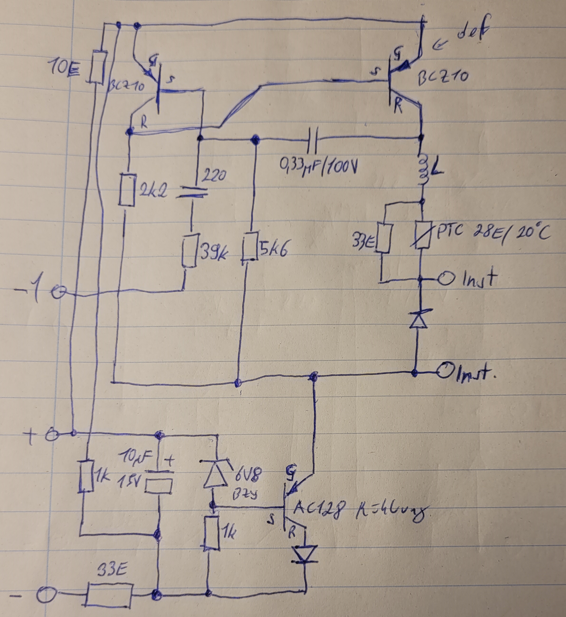 def
G
G
10E
BCZ10
S
S
BCZ10
R
R
0,33µF/100V
L
220
2k2
39k
5k6
33E
PTC 28E/20°C
-1
Inst
Inst.
+
10µF
+
15V
1k
6V8
BZY
G
S
AC128
R
1k
33E
-